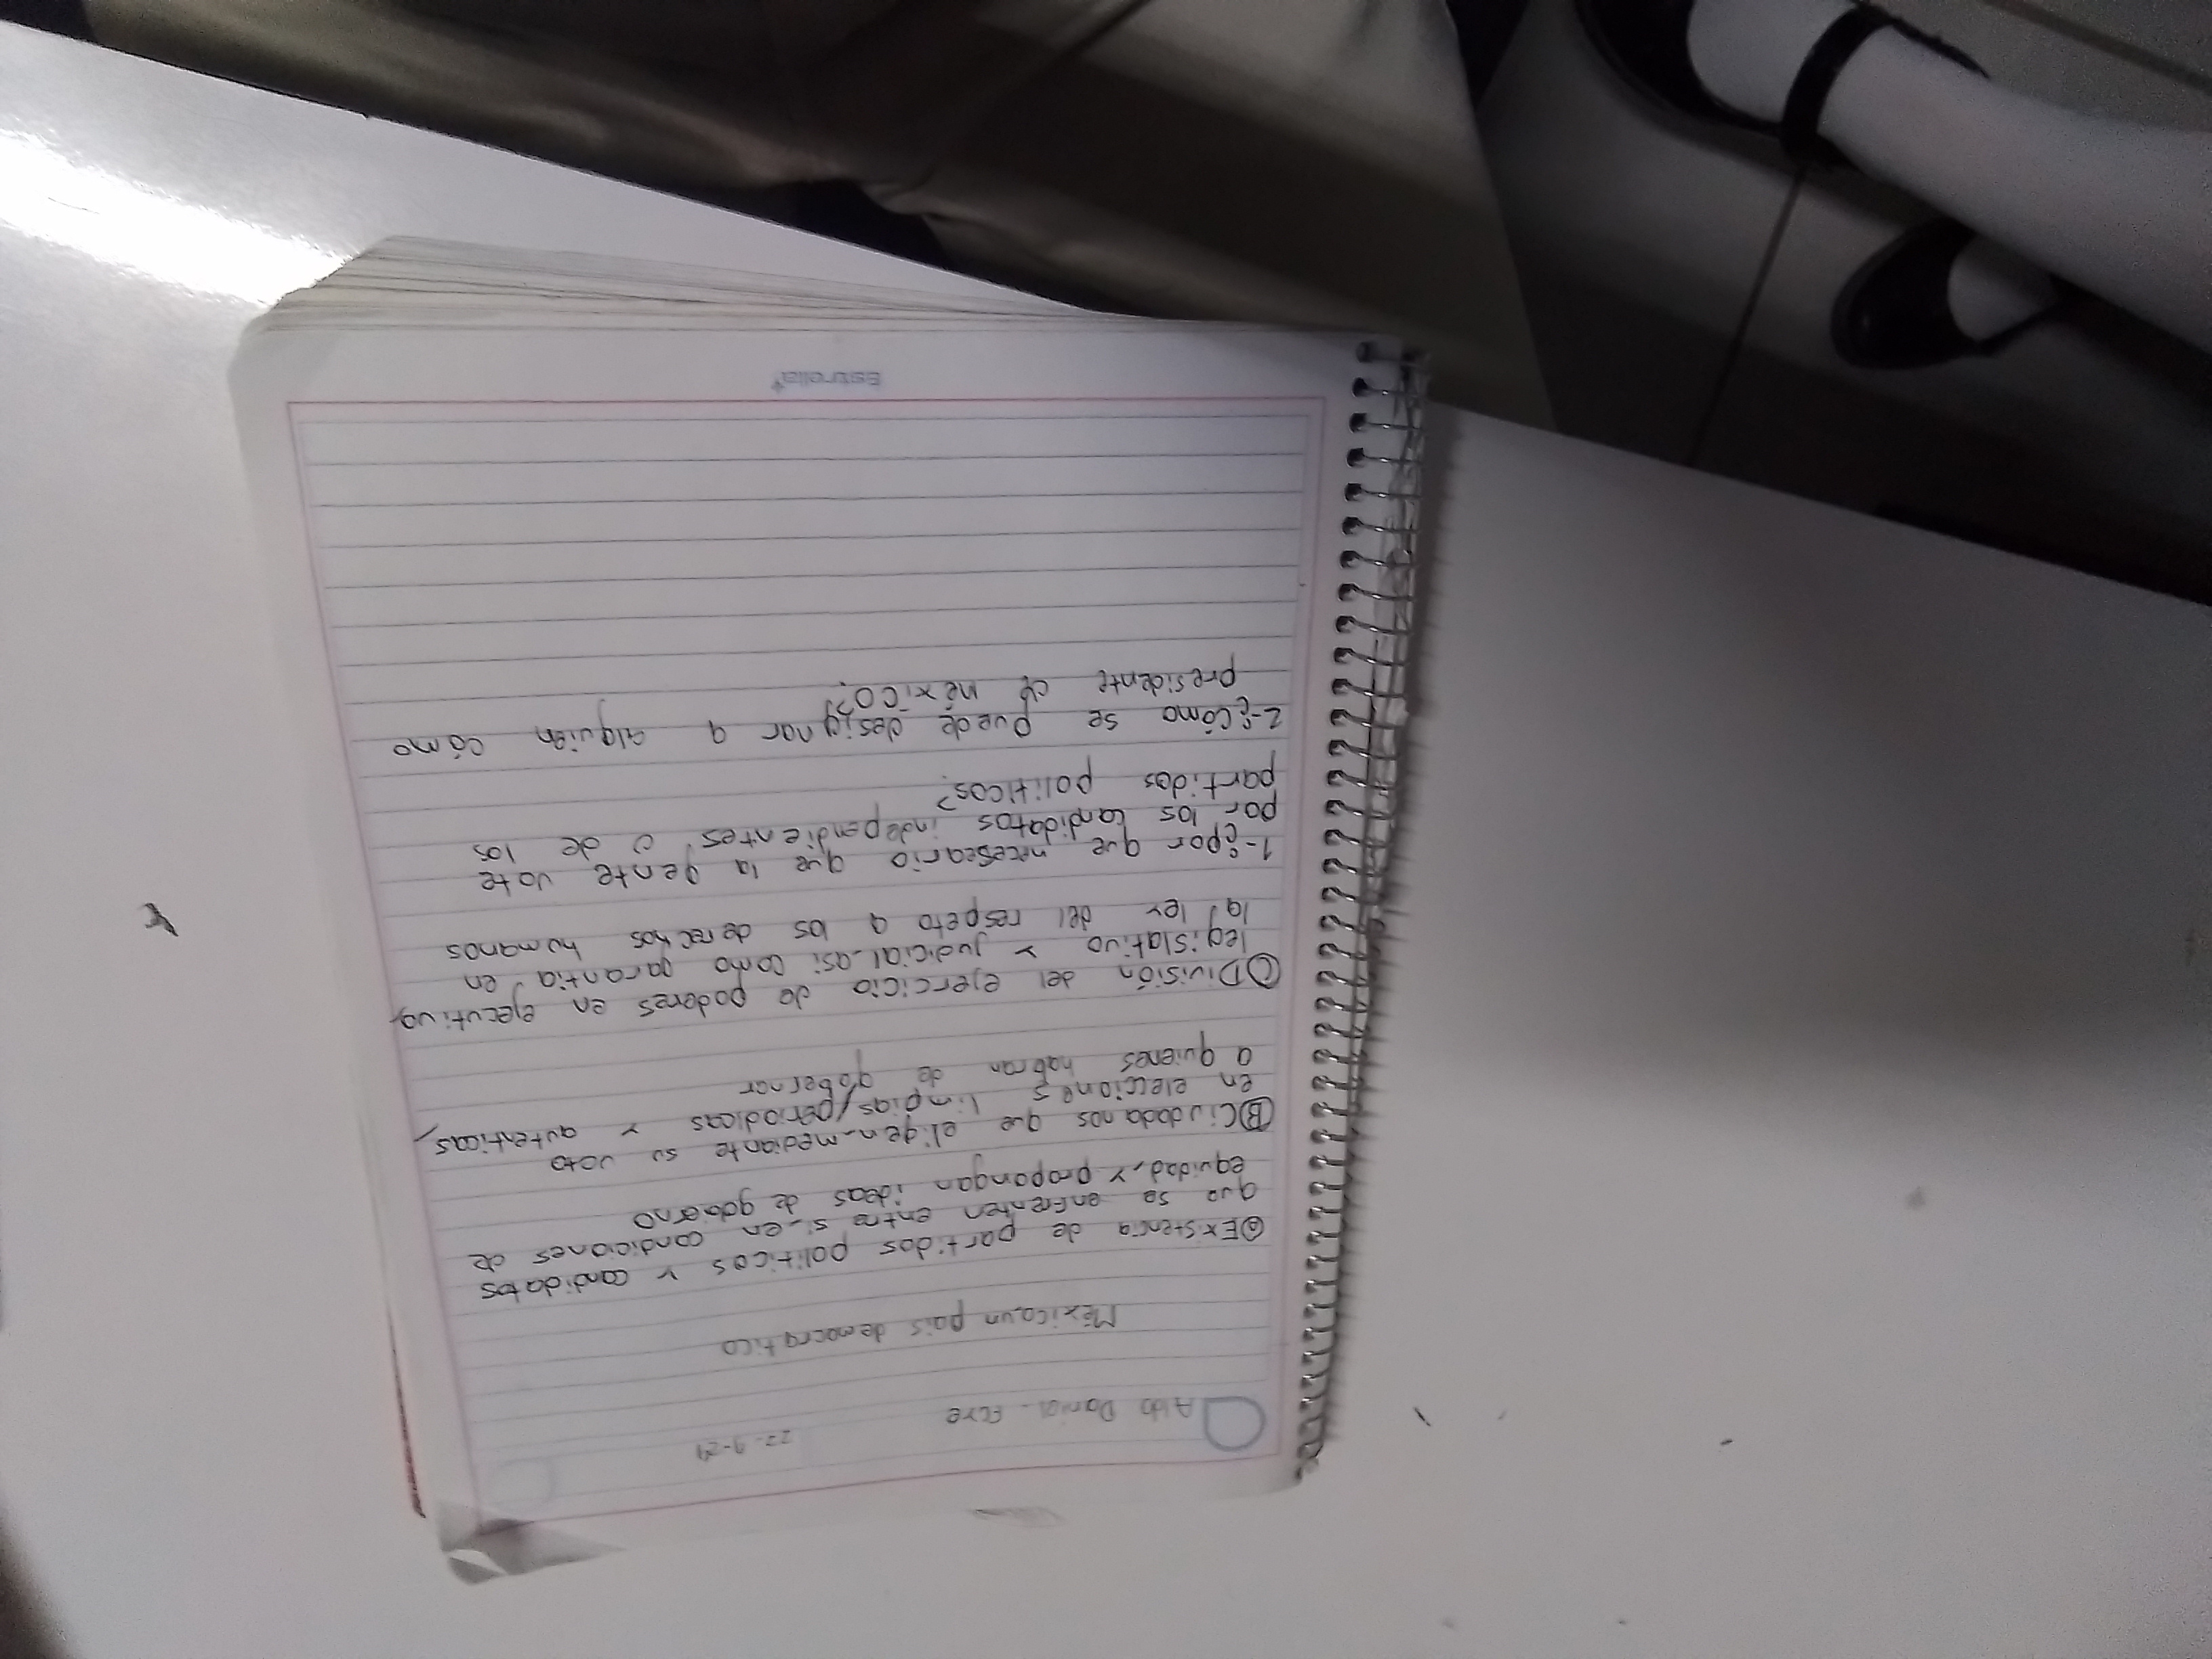 22-9-29
Aldo Daniel - FCYE
México,un pais democratico
@Existencia de partidos politicos y candidatos
que se enfrenten entre si-en condiciones de
equidad,y propongan ideas de gobierno
Ⓑ Ciudadanos que eligen-mediante su voto
en elecciones limpias,periodicas y autenticas,
a quienes habran de gobernar
Ⓒ División del ejercicio de poderes en ejecutivo,
legislativo y judicial-asi como garantia en
la ley del respeto a los derechos humanos
1-¿por que necesario que la gente vote
por los candidatos independientes o de los
partidos politicos?
2-¿Cómo se puede designar a alguien cómo
presidente de méxico?
Estrella